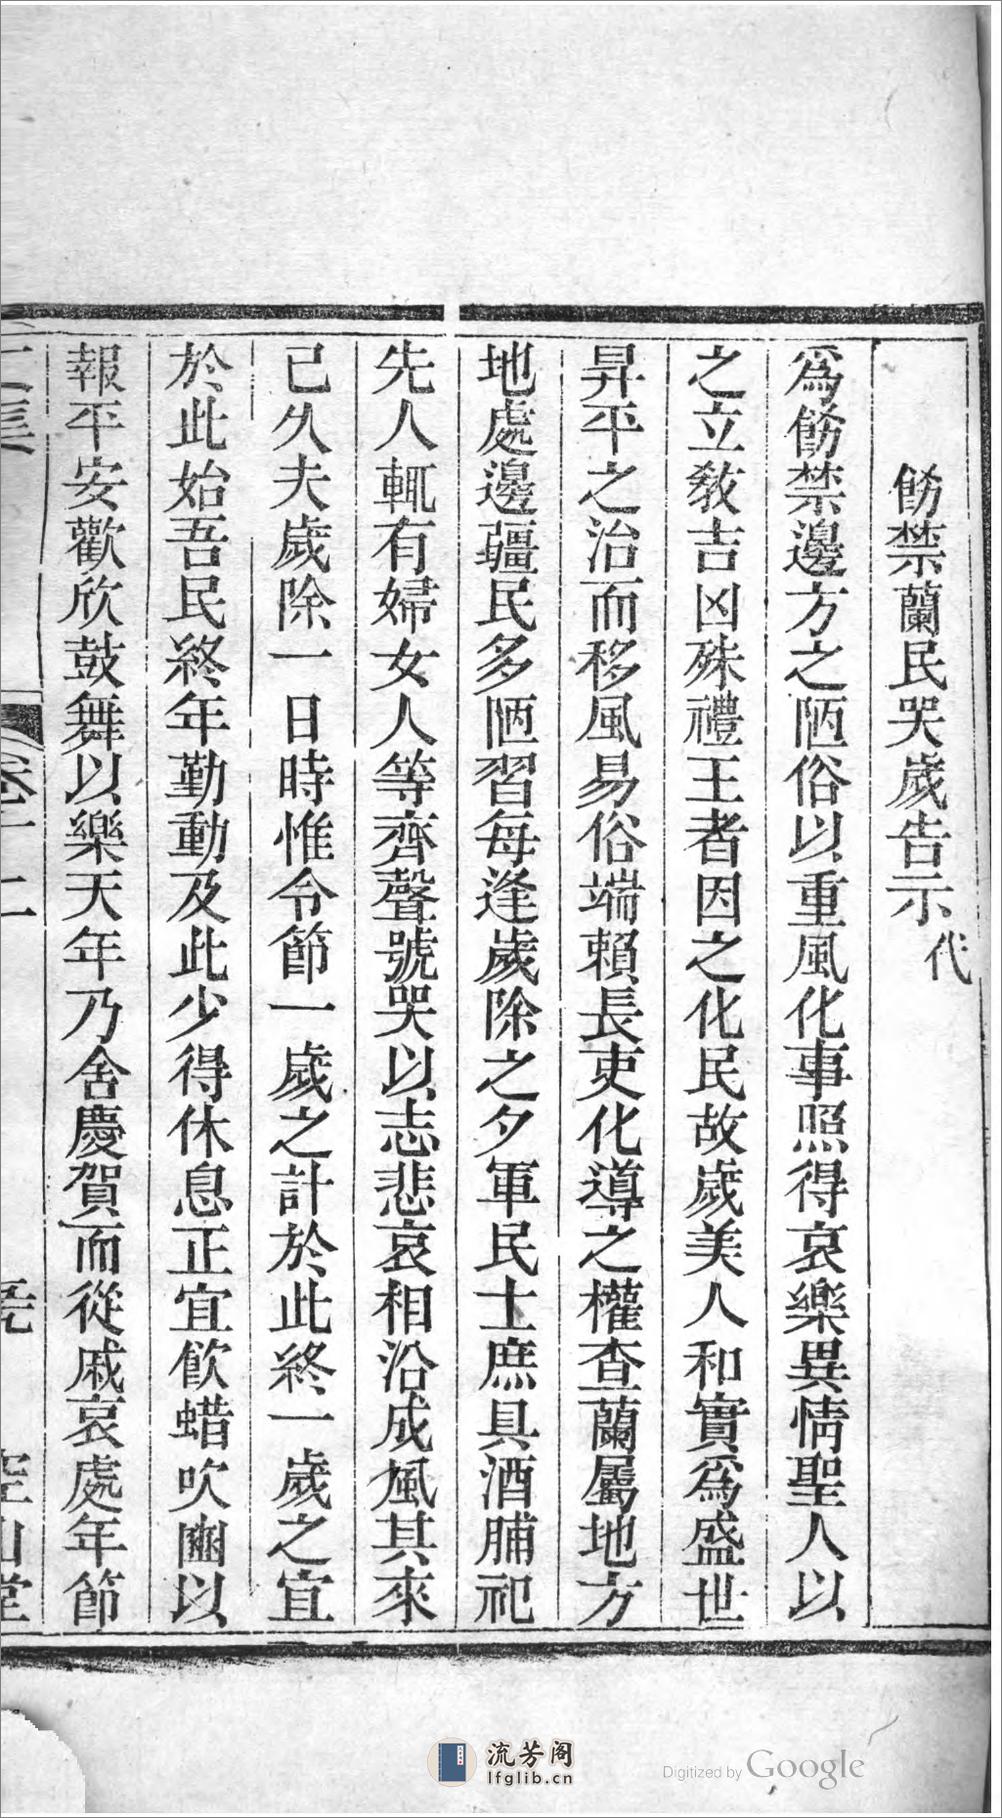 飭禁蘭民哭歲告示代
爲飭禁邊方之陋俗以重風化事照得哀樂異情聖人以
之立敎吉凶殊禮王者因之化民故歲美人和實爲盛世
昇平之治而移風易俗端賴長吏化導之權查蘭屬地方
地處邊疆民多陋習每逢歲除之夕軍民士庶具酒脯祀
先人輒有婦女人等齊聲號哭以志悲哀相沿成風其來
已久夫歲除一日時惟令節一歲之計於此終一歲之宜
於此始吾民終年勤動及此少得休息正宜飮蜡吹豳以
報平安歡欣鼓舞以樂天年乃舍慶賀而從戚哀處年節
卷十二
空山堂
流芳阁
lfglib.cn
Digitized by Google